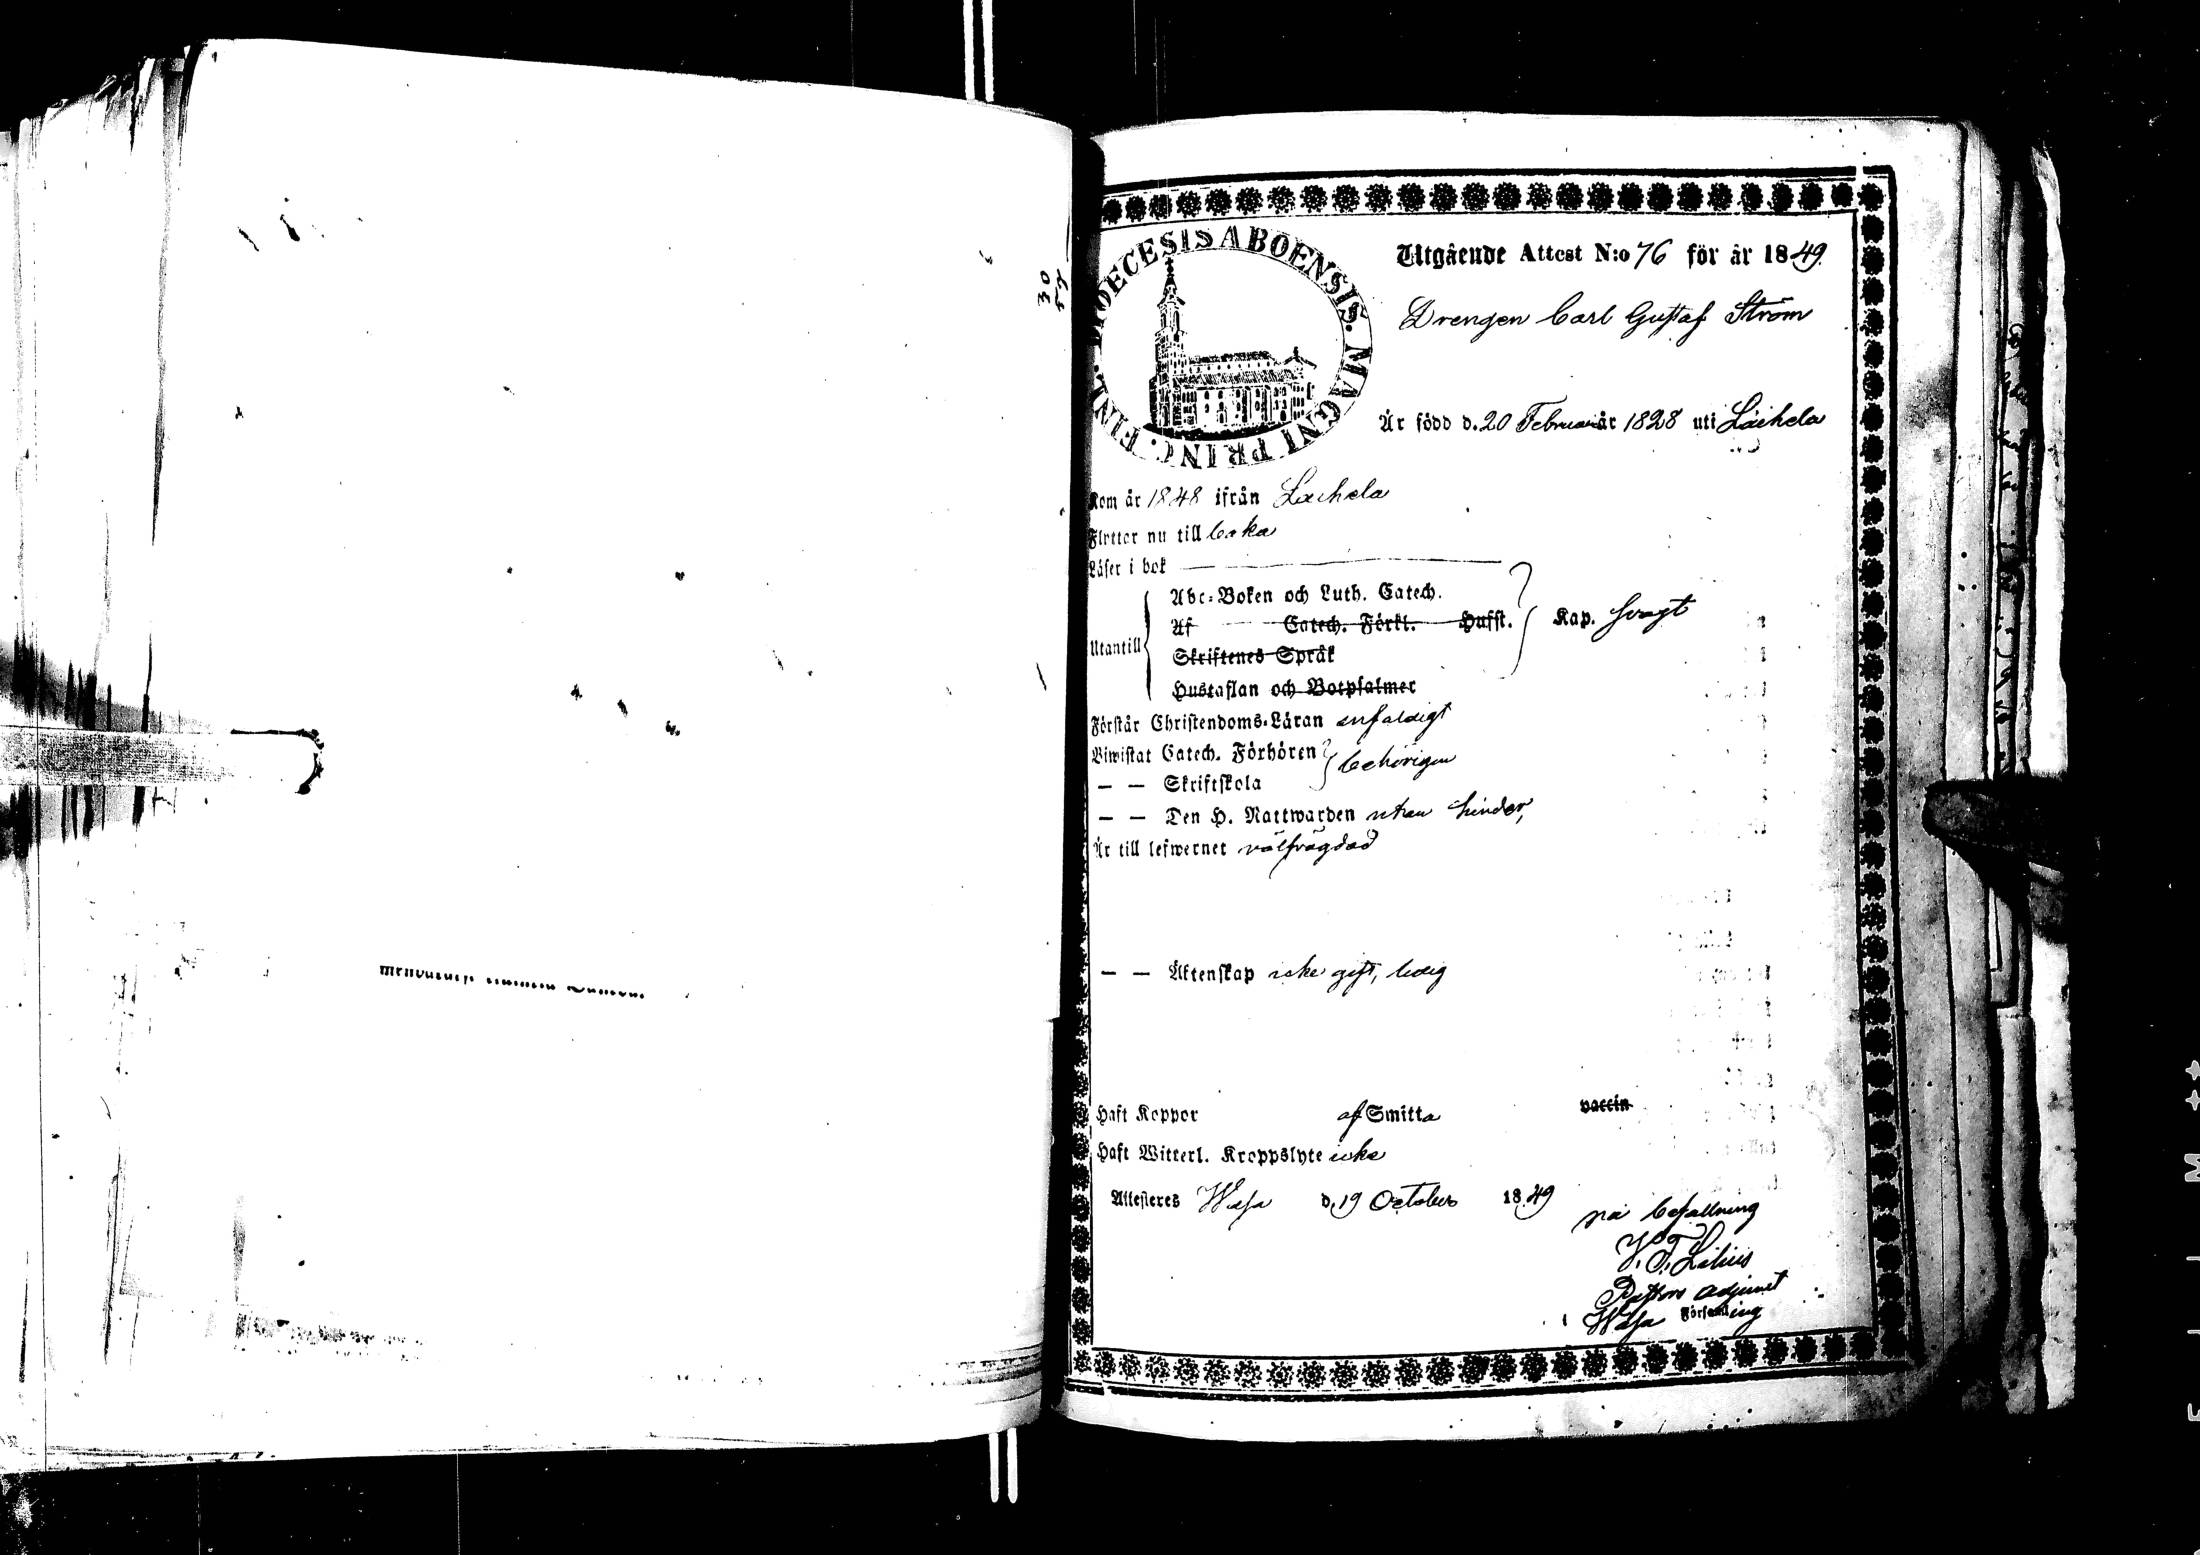 30
54
DIOECESIS ABOENSIS. MAGNI PRINC. FINL.
Utgående Attest N:o 76 för år 1849.
Drengen Carl Gustaf Ström
Är född d. 20 Februari år 1828 uti Laihela
Kom år 1848 ifrån Laihela
Flyttar nu till
Läser i bok
Abc-Boken och Luth. Catech.
Af Catech. Förkl. Husst.
Kap. svagt
Utantill
Skriftenes Språk
Hustaflan och Botpsalmer
Förstår Christendoms-Läran enfaldigt
Biwistat Catech. Förhören
behörigen
— — Skriftskola
— — Den H. Nattwarden utan hinder,
Är till lefwernet välfrägdad
— — Äktenskap icke gift, ledig
Haft Koppor af Smitta vaccin
Haft Witterl. Kroppslyte icke
Attesteras Wasa d. 19 October 1849
på befallning
Lilius
Pastors adjunct
Wasa Församling